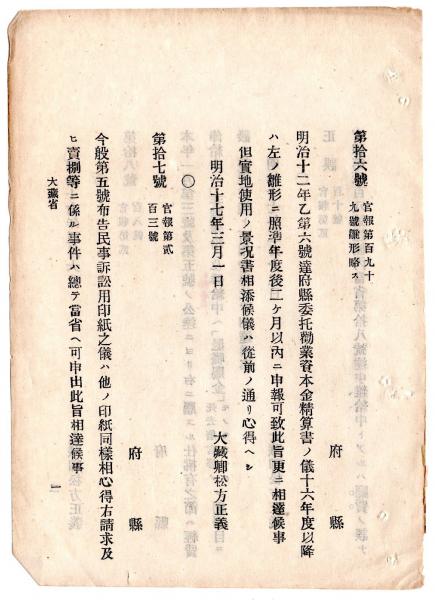 第拾六號
官報第百九十
九號雛形略ス
府縣
明治十二年乙第六號達府縣委托勸業資本金精算書ノ儀十六年度以降
ハ左ノ雛形ニ照準年度後二ケ月以內ニ申報可致此旨更ニ相達候事
但實地使用ノ景況書相添候儀ハ從前ノ通リ心得ヘシ
明治十七年三月一日
大藏卿松方正義
〇
第拾七號
官報第貳
百三號
府縣
今般第五號布告民事訴訟用印紙之儀ハ他ノ印紙同樣相心得右請求及
ヒ賣捌等ニ係ル事件ハ總テ當省ヘ可申出此旨相達候事
大藏省
一